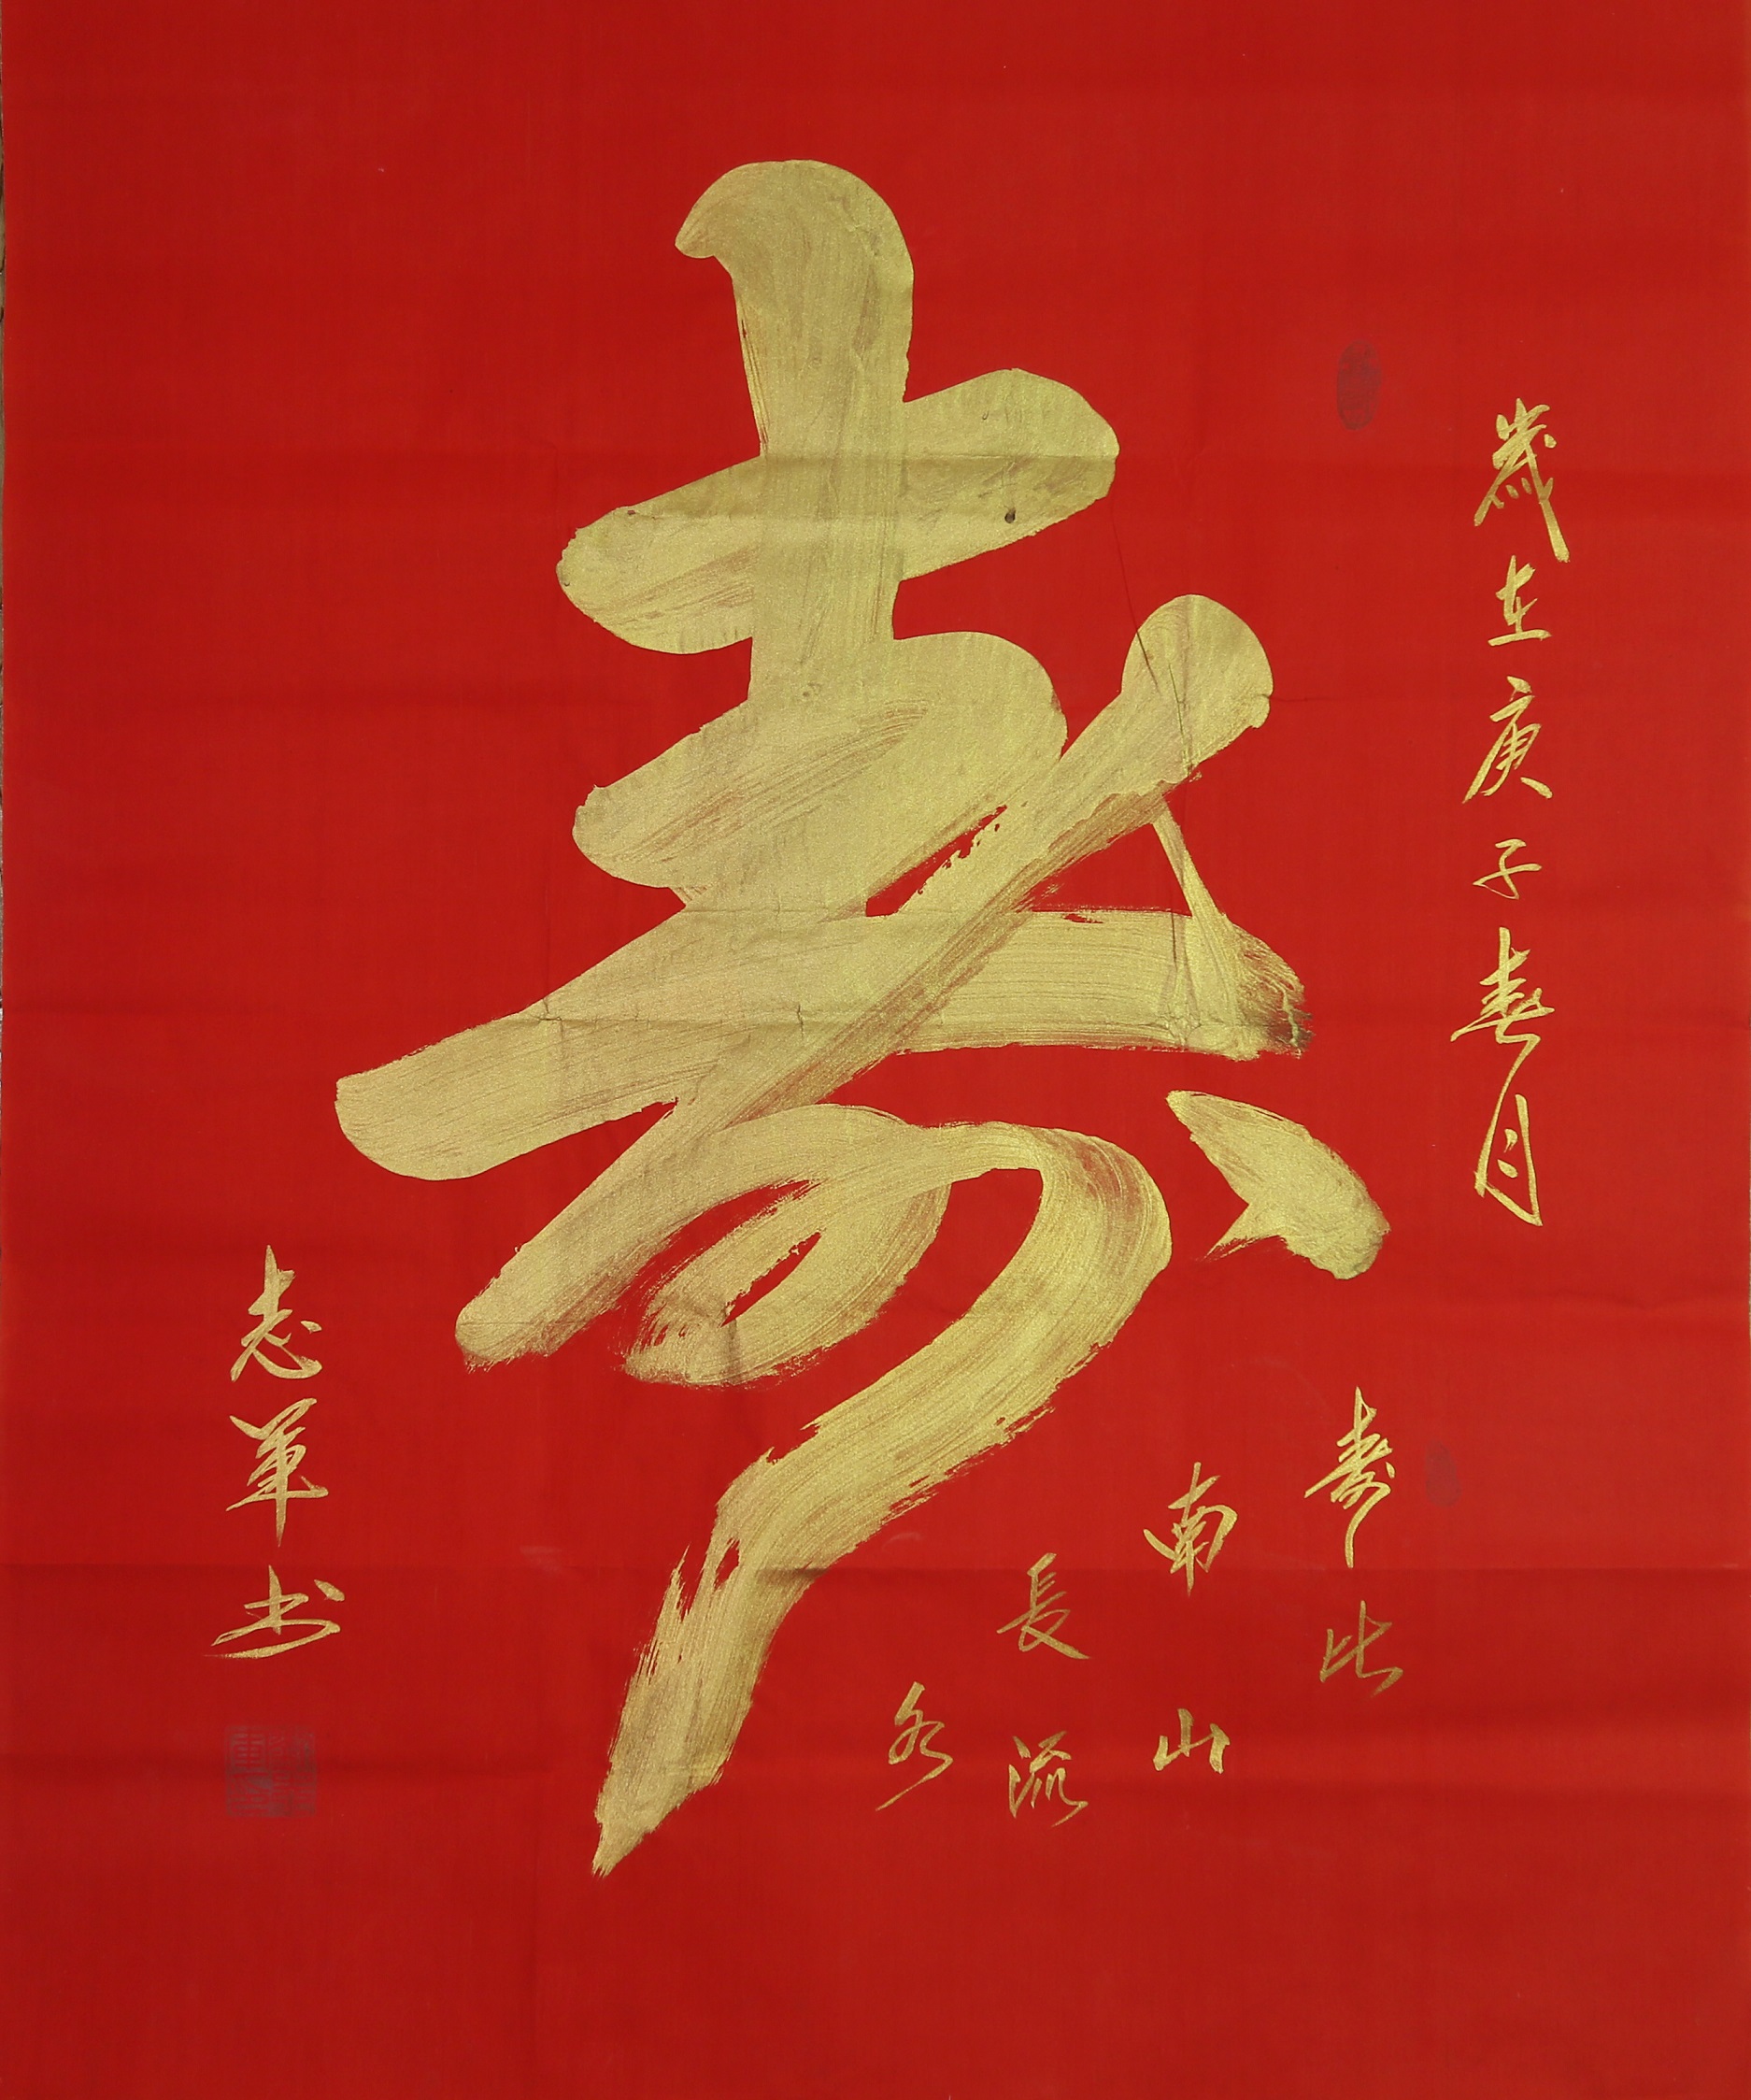 歲在庚子春月
寿
寿比
南山
長流
水
志軍书